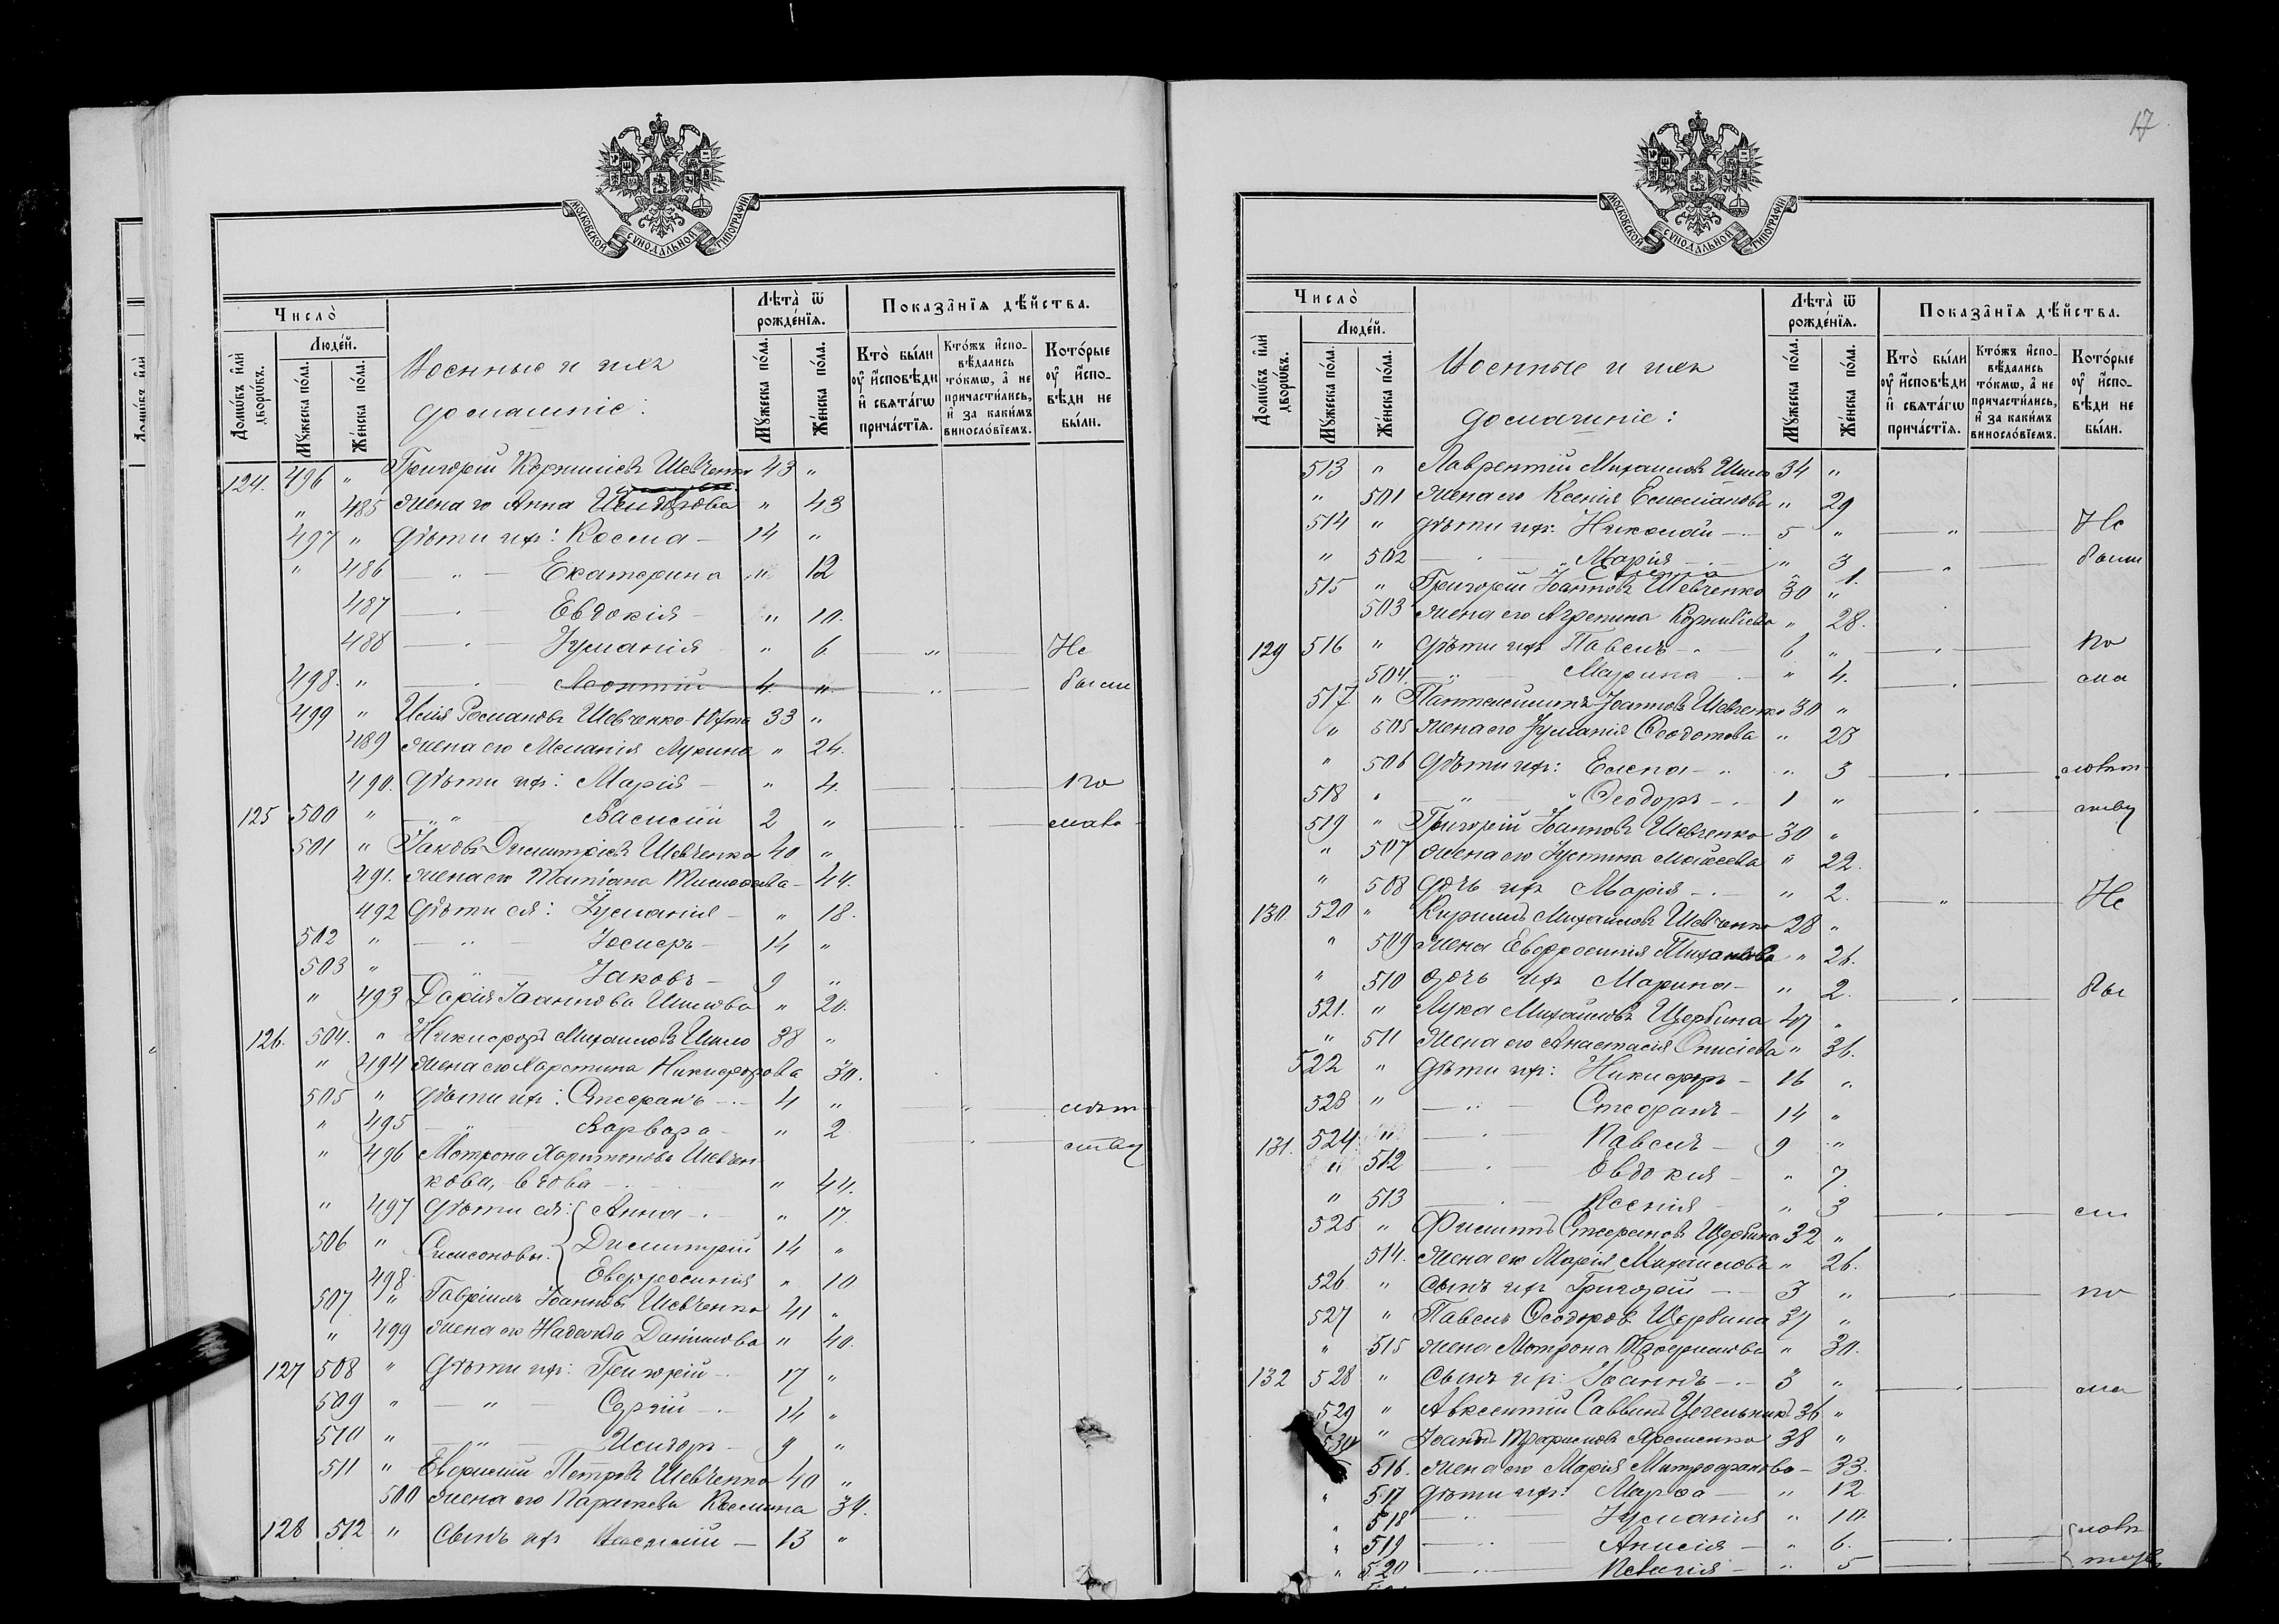 МОСКОВСКОЙ СѴНОДАЛЬНОЙ ТИПОГРАФІИ
Число̀
Домѡ́въ и҆лѝ дворѡ́въ.
Люде́й.
Мꙋ́жеска по́ла.
Же́нска по́ла.
Военные и ихъ
домашніе:
Лѣта̀ ѿ рожде́нїѧ.
Мꙋ́жеска по́ла.
Же́нска по́ла.
Показа̑нїѧ дѣ́йства.
Кто̀ бы́ли ᲂу҆ и҆́сповѣди и҆ свѧта́гѡ прича́стїѧ.
Кто́жъ и҆спо-вѣ́дались то́кмѡ, а҆ не причасти́лись, и҆ за каки́мъ винослові́емъ.
Кото́рые ᲂу҆ и҆́спо-вѣди не бы́ли.
124. 496 " Григорій Корниліевъ Шевченко 43 "
" 485 жена его Анна " 43
497 " дѣти ихъ: Косма — 14 "
" 486 — " — Екатерина " 12
487 — " — Евдокія — " 10.
488 — " — Іуліанія — " 6 — " — Не
498. " — " — Леонтій 4. " — " — были
499 " Илія Романовъ Шевченко-Юхта 33 "
489 жена его Меланія Лукина " 24.
490. дѣти ихъ: Марія — " 4. — по
125 500 " — " — Василій 2 " — мало
501 " Іаковъ Димитріевъ Шевченко 40 "
491. жена его Татіана — 44.
492 дѣти ея: Іуліанія — " 18.
502 " — " — Іосифъ — 14 "
503 " — " — Іаковъ — 9 "
" 493 Дарія Іоаннова Шилова " 20.
126. 504. " Никифоръ Михаиловъ Шило 38 "
" 494 жена его Харитина Никифорова 30.
505 " дѣти ихъ: Стефанъ — 4 " — " — лѣт
" 495 — " — Варвара — " 2 — " — ству
" 496 Мотрона Харитонова Шевчен-
кова, вдова — " 44.
" 497 дѣти ея: Анна — " 17.
506 " Симеоновы. Димитрій 14 "
498 Евфросинія " 10
507 " Гавріилъ Іоанновъ Шевченко 41 "
" 499 жена его Надежда Даніилова " 40.
127 508 " дѣти ихъ: Григорій — 17 "
509 " — " — Сергій — 14 "
510 " — " — Исидоръ — 9 "
511 " Евфимій Петровъ Шевченко 40 "
500 жена его Параскева Космина 34.
128 512 " сынъ ихъ Василій — 13 "
17
МОСКОВСКОЙ СѴНОДАЛЬНОЙ ТИПОГРАФІИ
Число̀
Домѡ́въ и҆лѝ дворѡ́въ.
Люде́й.
Мꙋ́жеска по́ла.
Же́нска по́ла.
Военные и ихъ
домашніе:
Лѣта̀ ѿ рожде́нїѧ.
Мꙋ́жеска по́ла.
Же́нска по́ла.
Показа̑нїѧ дѣ́йства.
Кто̀ бы́ли ᲂу҆ и҆́сповѣди и҆ свѧта́гѡ прича́стїѧ.
Кто́жъ и҆спо-вѣ́дались то́кмѡ, а҆ не причасти́лись, и҆ за каки́мъ винослові́емъ.
Кото́рые ᲂу҆ и҆́спо-вѣди не бы́ли.
513 " Лаврентій Михаиловъ Шило 34 "
" 501 жена его Ксенія Емеліанова " 29
514 " дѣти ихъ: Николай — 5 " — " — Не
" 502 — " — Марія — " 3 — " — были
Елена " 1.
515 " Григорій Іоанновъ Шевченко 30 "
503 жена его Агрепина Корниліева " 28.
129 516 " дѣти ихъ Павелъ — 6 " — " — по
504. — " — Марина — " 4. — " — ма
517 " Пантелиимонъ Іоанновъ Шевченко 30 "
" 505 жена его Іуліанія Ѳеодотова " 23
" 506 дѣти ихъ: Елена — " 3 — " — лолѣт
518 " — " — Ѳеодоръ — 1 " — " — ству
519 " Григорій Іоанновъ Шевченко 30 "
" 507 жена его Іустина Моисеева " 22.
" 508 дочь ихъ Марія — " 2. — " — Не
130 520 " Кириллъ Михаиловъ Шевченко 28 "
" 509 жена Евфросинія " 26.
" 510 дочь ихъ Марина — " 2. — " — бы
521. " Лука Михаиловъ Щербина 47 "
" 511 жена его Анастасія Онисіева " 36.
522 " дѣти ихъ: Никифоръ — 16 "
523 " — " — Стефанъ — 14 "
131. 524 " — " — Павелъ — 9 "
" 512 — " — Евдокия — " 7.
" 513 — " — Ксенія — " 3 — " — ли
525 " Филиппъ Стефановъ Щербина 32 "
514. жена его Марія Михаилова " 26.
526 " сынъ ихъ Григорій — 3 " — " — по
527 " Павелъ Ѳеодоровъ Щербина 37 "
" 515 жена Мотрона Трофимова " 30.
132 528 " сынъ ихъ: Іоаннъ — 3 " — " — ма
529 " Авксентій Саввинъ Цегельникъ 36 "
530 " Іоаннъ Трофимовъ Яременко 38 "
516. жена его Марія Митрофанова — 33.
" 517 дѣти ихъ: Марѳа — " 12
" 518 — " — Іуліанія " 10.
" 519 — " — Анисія — " 6. — лолѣ
" 520 — " — Пелагія — " 5